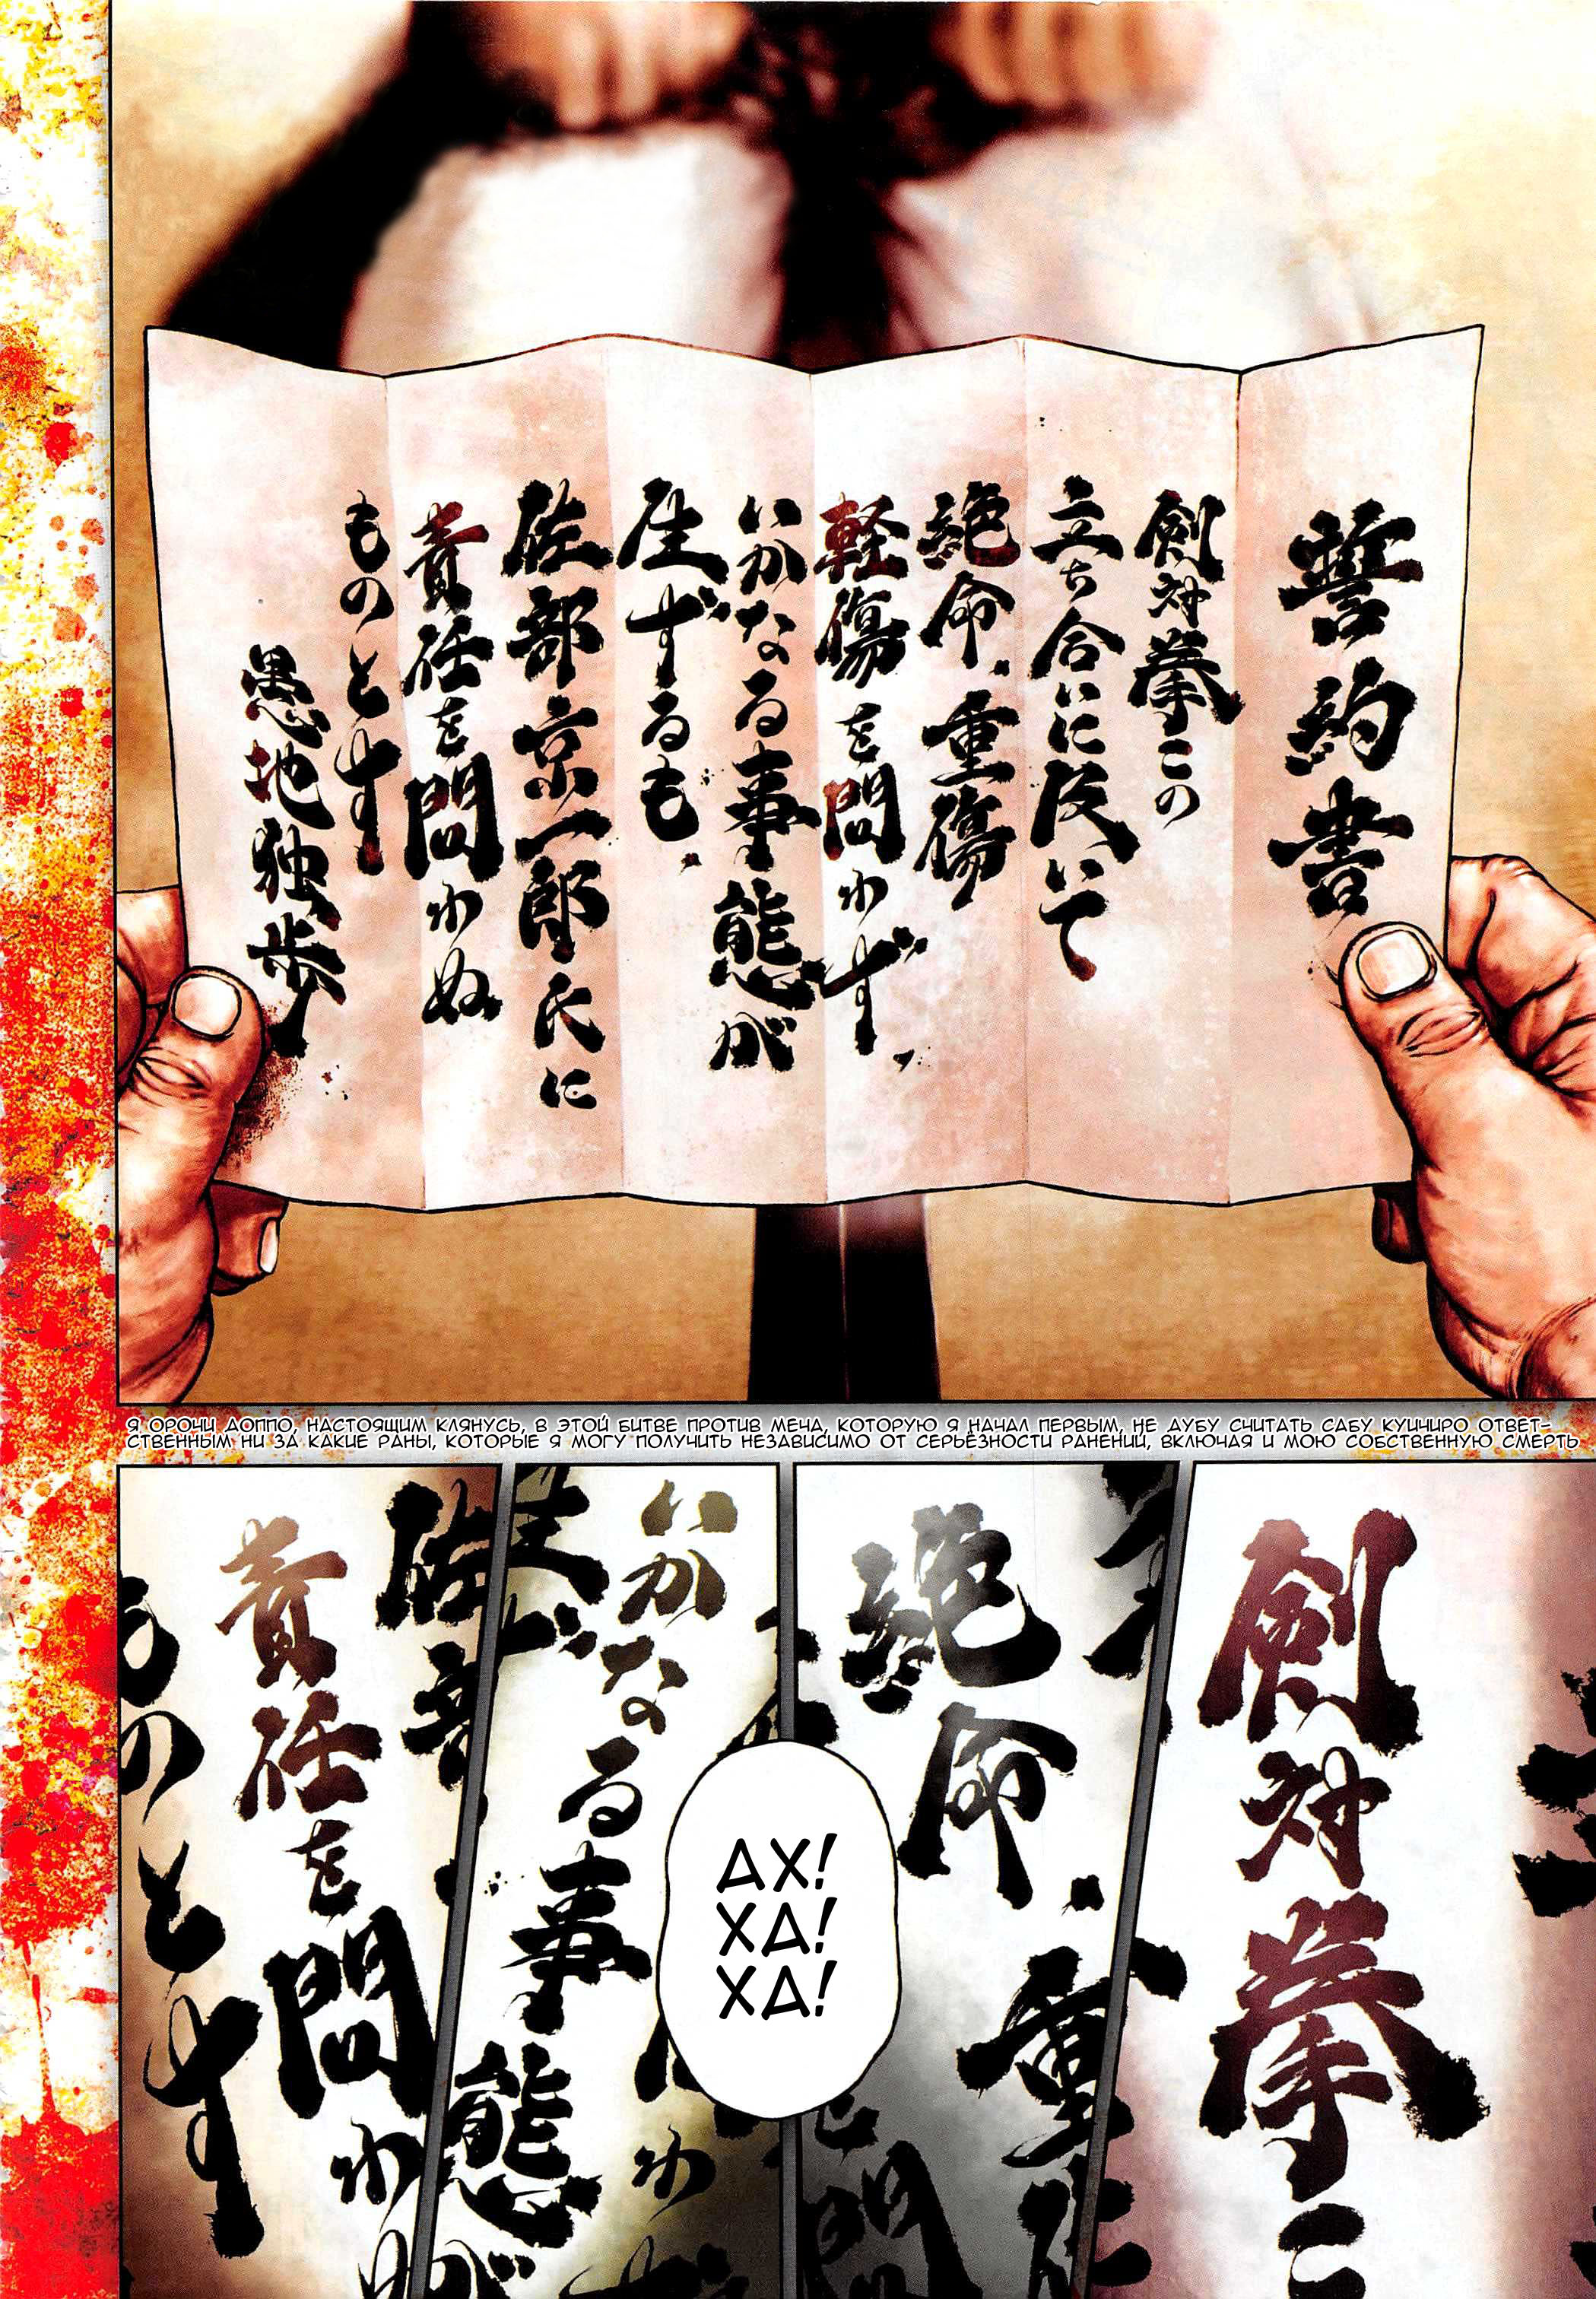 誓約書
剣対拳この
立ち合いに及いて
絶命、重傷
軽傷を問わず、
いかなる事態が
生ずるも、
佐部京一郎氏に
責任を問わぬ
ものとす
愚地独歩
Я ОРОЧИ ДОППО, НАСТОЯЩИМ КЛЯНУСЬ, В ЭТОЙ БИТВЕ ПРОТИВ МЕЧА, КОТОРУЮ Я НАЧАЛ ПЕРВЫМ, НЕ ДУБУ СЧИТАТЬ САБУ КУИЧИРО ОТВЕТ-
СТВЕННЫМ НИ ЗА КАКИЕ РАНЫ, КОТОРЫЕ Я МОГУ ПОЛУЧИТЬ НЕЗАВИСИМО ОТ СЕРЬЁЗНОСТИ РАНЕНИЙ, ВКЛЮЧАЯ И МОЮ СОБСТВЕННУЮ СМЕРТЬ
剣対拳こ
絶命、重
いかなる事態が
責任を問わぬ
ものとす
АХ!
ХА!
ХА!